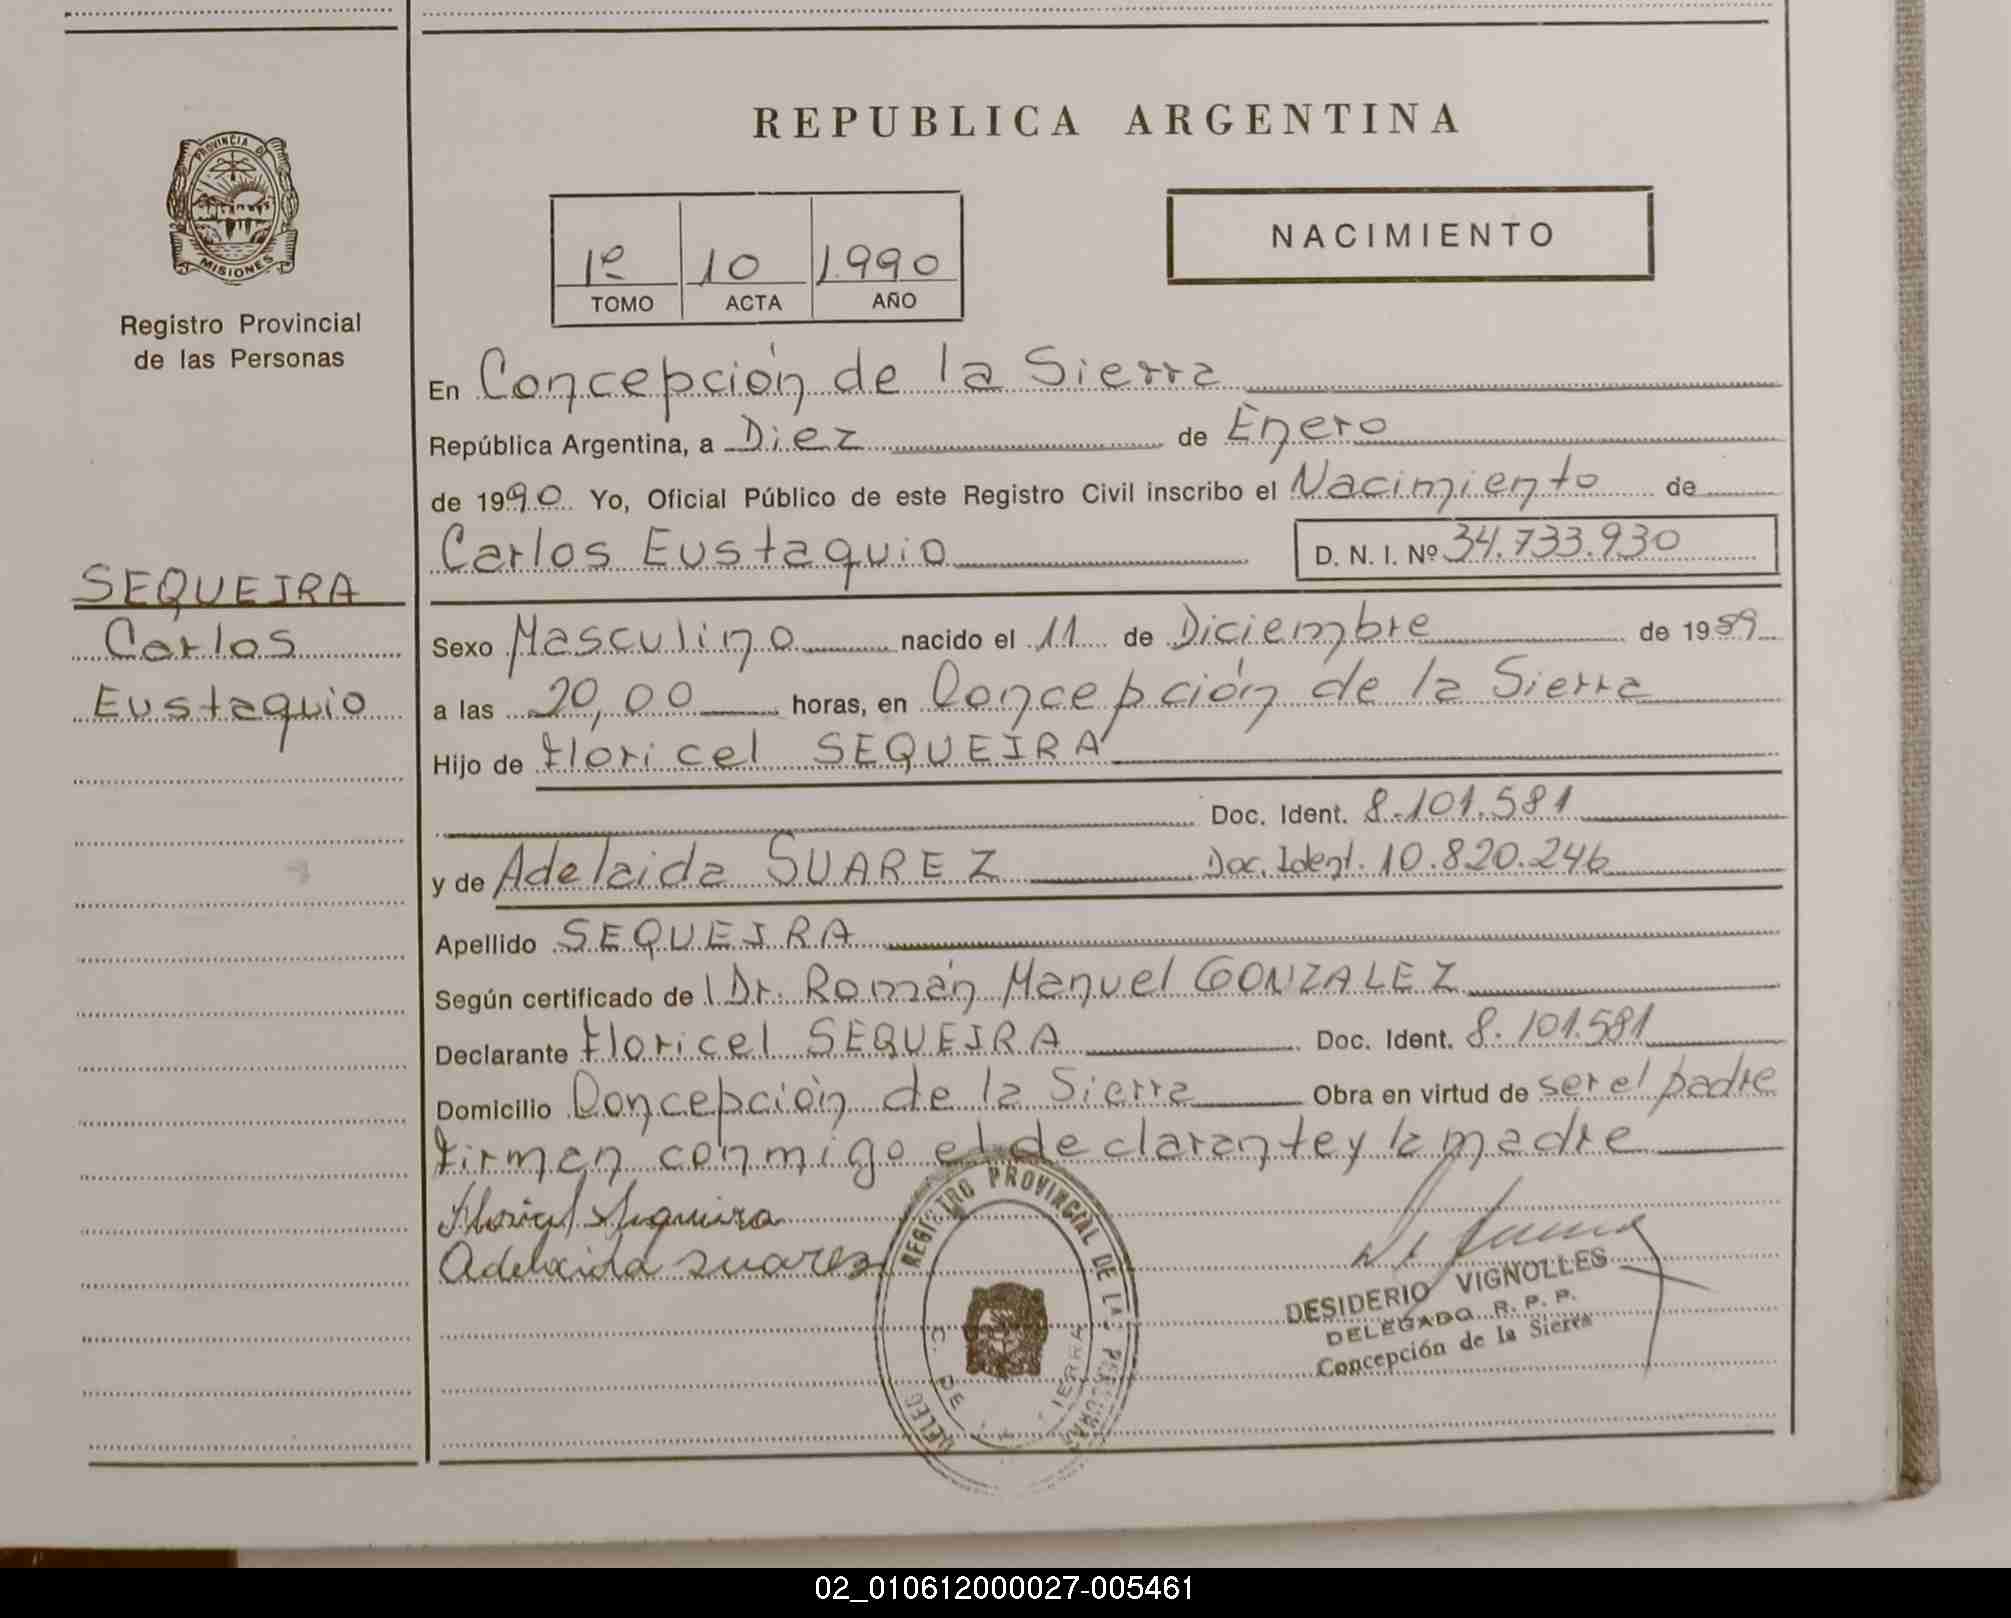 REPUBLICA ARGENTINA
PROVINCIA DE
MISIONES
Registro Provincial
de las Personas
NACIMIENTO
1º 10 1.990
TOMO ACTA AÑO
En Concepción de la Sierra
República Argentina, a Diez de Enero
de 1990 Yo, Oficial Público de este Registro Civil inscribo el Nacimiento de
Carlos Eustaquio D. N. I. Nº 34.733.930
SEQUEIRA
Carlos
Eustaquio
Sexo Masculino nacido el 11 de Diciembre de 1989
a las 20,00 horas, en Concepción de la Sierra
Hijo de Floricel SEQUEIRA
Doc. Ident. 8.101.581
y de Adelaida SUAREZ Doc. Ident. 10.820.246
Apellido SEQUEIRA
Según certificado de l Dr. Román Manuel GONZALEZ
Declarante Floricel SEQUEIRA Doc. Ident. 8.101.581
Domicilio Concepción de la Sierra Obra en virtud de ser el padre
Firman conmigo el declarante y la madre
Floricel Sequeira
Adelaida Suarez
REGISTRO PROVINCIAL DE LAS PERSONAS
C. DE SIERRA
DESIDERIO VIGNOLLES
DELEGADO R. P. P.
Concepción de la Sierra
02_010612000027-005461